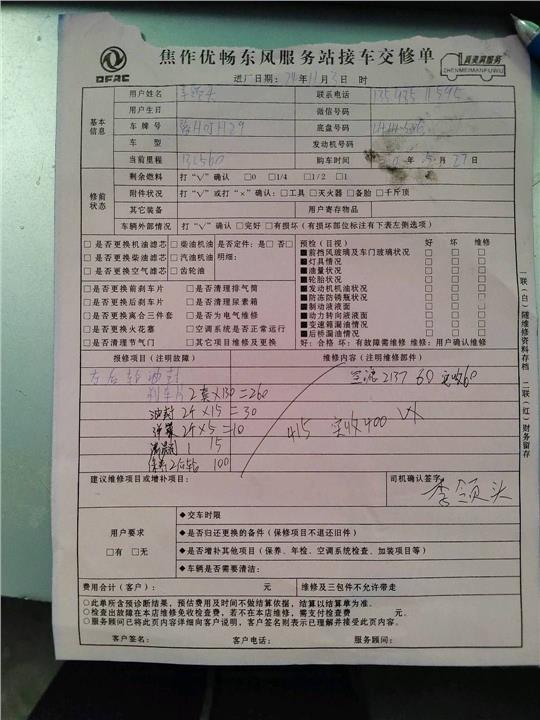 DFAC
焦作优畅东风服务站接车交修单
真美满服务
ZHENMEIMANFUWU
进厂日期: 24年11月3日 时
基本信息
用户姓名 李领头 联系电话
用户生日 微信号码
车牌号 底盘号码
车型 发动机号码
当前里程 131560 购车时间 年 月 27日
修前状态
剩余燃料 打“√”确认 □0 □1/4 □1/2 □1
附件状况 打“√”或打“×”确认:□工具 □灭火器 □备胎 □千斤顶
其它装备 用户寄存物品
车辆外部情况 打“√”确认 □完好 □有损坏(有损坏部位标注有下表左侧选项)
□是否更换机油滤芯 □柴油机油 是否定件:是□ 否□
□是否更换柴油滤芯 □汽油机油 明细:
□是否更换空气滤芯 □齿轮油
□是否更换前刹车片 □是否清理排气筒
□是否更换后刹车片 □是否清理尿素箱
□是否更换离合三件套 □是否为电气维修
□是否更换火花塞 □空调系统是否正常运行
□是否清理节气门 □其它项目维修及更换
预检(目视) 好 坏 维修
■前挡风玻璃及车门玻璃状况 □ □ □
■灯具情况 □ □ □
■油量状况 □ □ □
■轮胎状况 □ □ □
■发动机机油状况 □ □ □
■防冻防锈瓶状况 □ □ □
■制动液液面 □ □ □
■动力转向液液面 □ □ □
■变速箱漏油情况 □ □ □
■后桥漏油情况 □ □ □
好:合格 坏:有故障需维修 维修:用户确认维修
报修项目(注明故障) 维修内容(注明维修部件)
左后轮油封 空滤2137 60 实收60
刹车片 2套×130=260
油封 2个×15=30
2个×5=10
1 15
100
415 实收400
建议维修项目或增补项目:
司机确认签字
李领头
用户要求
□有 □无
◆交车时限
◆是否归还更换的备件(保修项目不退还旧件)
◆是否增补其他项目(保养、年检、空调系统检查、加装项目等)
◆车辆是否需要清洁:
费用合计(客户): 元 维修及三包件不允许带走
○此单所含预诊断结果,预估费用及时间不做结算依据,结算以结算单为准。
○检查出故障在本店维修免收检查费,若不在本店维修,需支付检查费 元。
○服务顾问已将此页内容详细向客户说明,客户签名则表示已理解并接受此页内容。
客户签名: 客户电话: 服务顾问:
一联(白)随维修资料存档 二联(红)财务留存